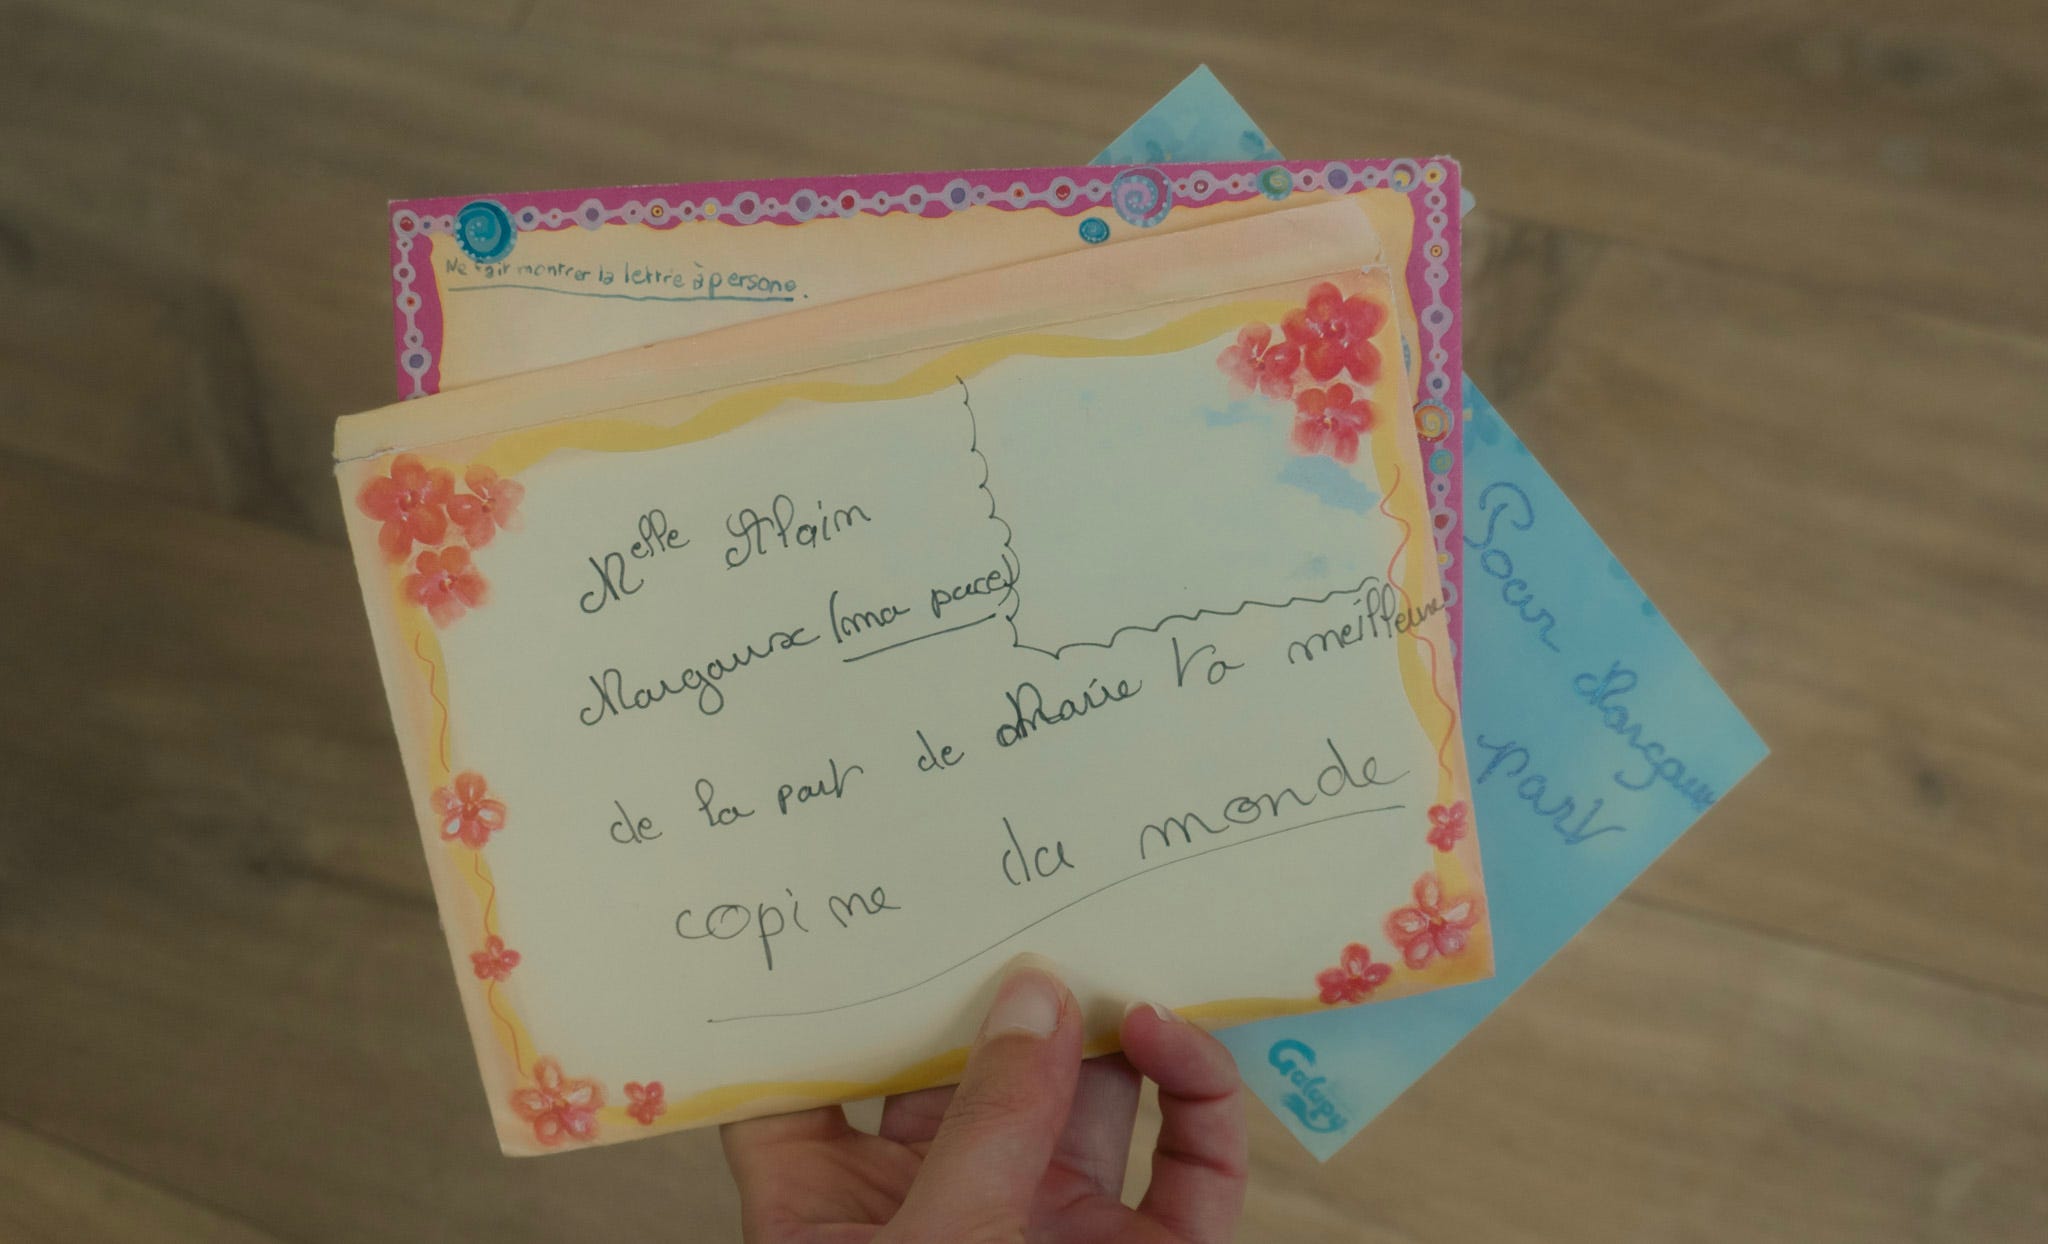 Ne fair montrer la lettre à persone.
Melle Alain
Margaux (ma puce)
de la part de Marie ta meilleure
copine du monde
Pour Margaux
part
Galupy